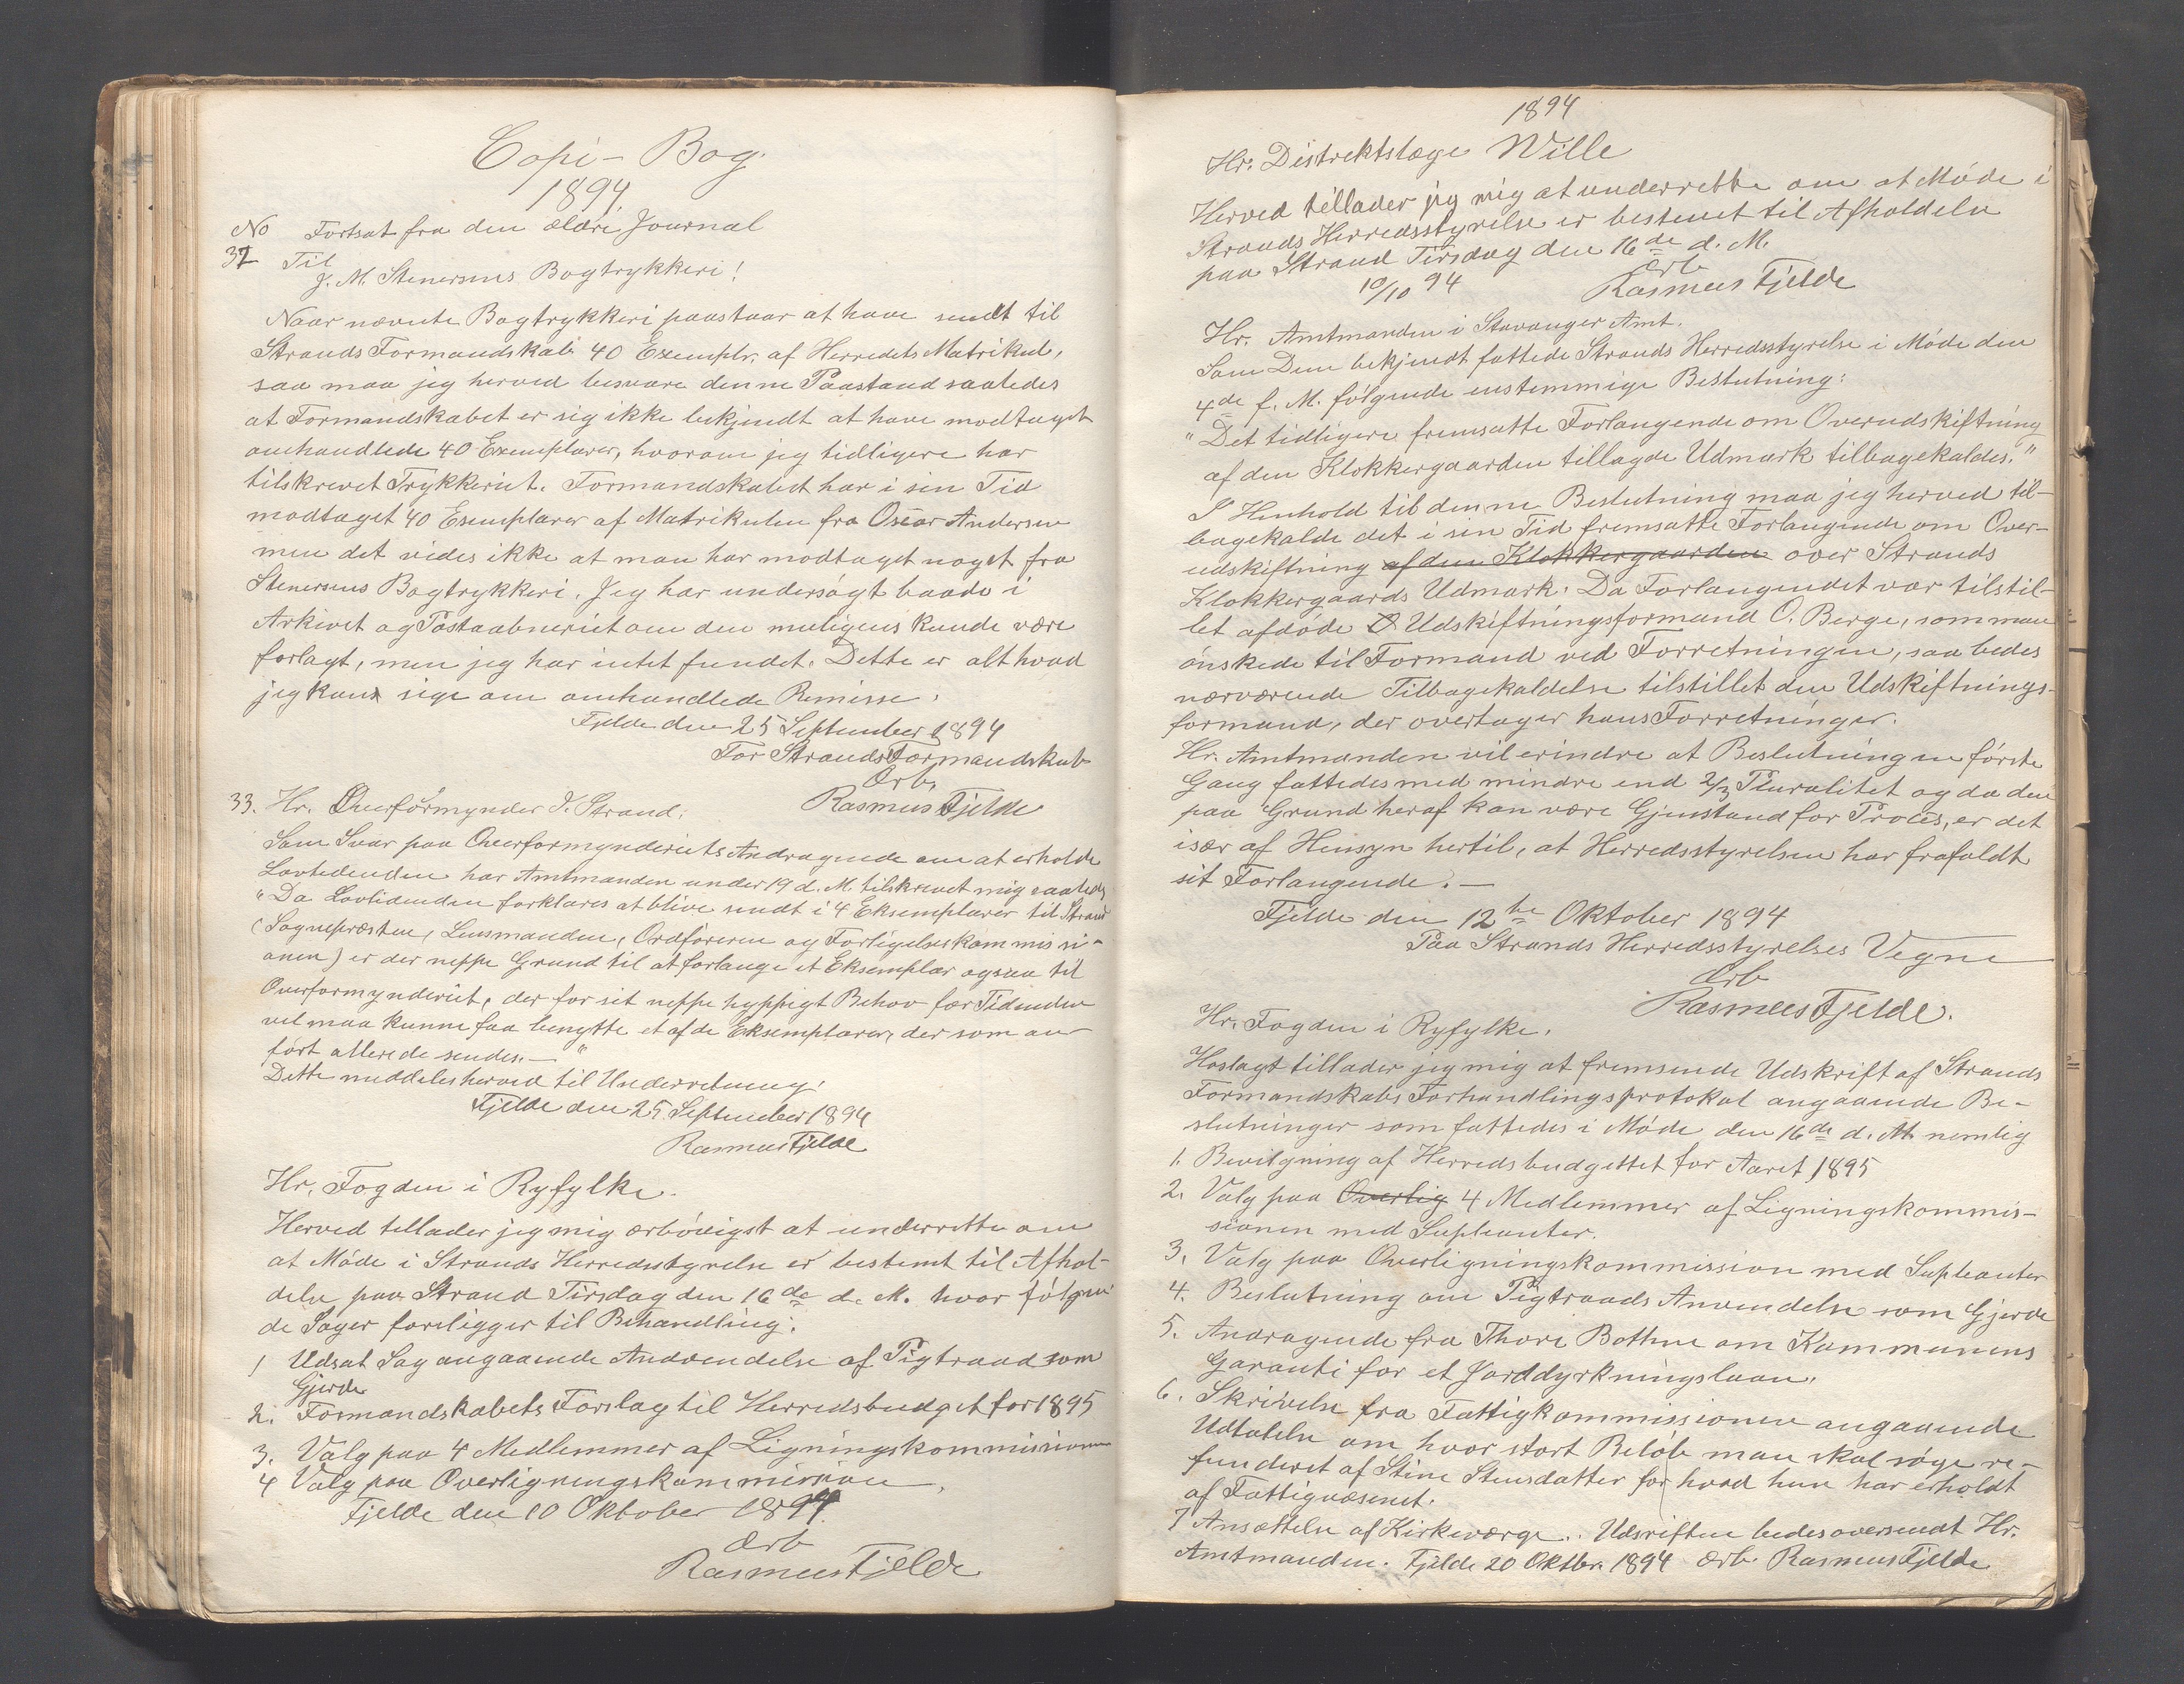 Copi-Bog.
1894.
No Fortsat fra den ældre Journal
32 Til
J. M. Stenersens Bogtrykkeri!
Naar nævnte Bogtrykkeri paastaar at have sendt til
Strands Formandskab 40 Exemplr. af Herredets Matrikul,
saa maa jeg herved besvare denne Paastand saaledes
at Formandskabet er sig ikke bekjendt at have modtaget
omhandlede 40 Exemplarer, hvorom jeg tidligere har
tilskrevet Trykkeriet. Formandskabet har i sin Tid
modtaget 40 Exemplarer af Matrikulen fra Oscar Andersen
men det vides ikke at man har modtaget noget fra
Stenersens Bogtrykkeri. Jeg har undersøgt baade i
Arkivet og Postaabneriet om den muligens kunde være
forlagt, men jeg har intet fundet. Dette er alt hvad
jeg kan sige om omhandlede Remisse.
Fjelde den 25 September 1894
For Strands Formandskab
Ærb.
Rasmus Fjelde
33. Hr. Overformynder I. Strand.
Som Svar paa Overformynderiets Andragende om at erholde
Lovtidenden har Amtmanden under 19 d. M. tilskrevet mig saaledes
"Da Lovtidenden forklares at blive sendt i 4 Eksemplarer til Strand
(Sognepræsten, Lensmanden, Ordføreren og Forligelseskommissi-
onen) er der neppe Grund til at forlange et Eksemplar ogsaa til
Overformynderiet, der for sit neppe hyppigt Behov for Tidenden
vel maa kunne faa benytte et af de Eksemplarer, der som an-
ført allerede sendes. — "
Dette meddeles herved til Underretning.
Fjelde den 25 September 1894
Rasmus Fjelde
Hr. Fogden i Ryfylke.
Herved tillader jeg mig ærbødigst at underrette om
at Møde i Strands Herredsstyrelse er bestemt til Afhol-
delse paa Strand Tirsdag den 16de d. M. hvor følgen-
de Sager foreligger til Behandling:
1 Udsat Sag angaaende Andvendelse af Pigtraad som
Gjerde
2. Formandskabets Forslag til Herredsbudget for 1895
3. Valg paa 4 Medlemmer af Ligningskommissionen
4 Valg paa Overligningskommission.
Fjelde den 10 Oktober 1894.
Ærb
Rasmus Fjelde
1894
Hr. Distriktslæge Wille
Herved tillader jeg mig at underrette om at Møde i
Strands Herredsstyrelse er bestemt til Afholdelse
paa Strand Tirsdag den 16de d. M.
10/10 94
Ærb
Rasmus Fjelde
Hr. Amtmanden i Stavanger Amt.
Som Dem bekjendt fattede Strands Herredsstyrelse i Møde den
4de f. M. følgende enstemmige Beslutning:
"Det tidligere fremsatte Forlangende om Overudskiftning
af den Klokkergaarden tillagde Udmark tilbagekaldes."
I Henhold til denne Beslutning maa jeg herved til-
bagekalde det i sin Tid fremsatte Forlangende om Over-
udskiftning af den Klokkergaarden over Strands
Klokkergaards Udmark. Da Forlangendet var tilstil-
let afdøde O Udskiftningsformand O. Berge, som man
ønskede til Formand ved Forretningen, saa bedes
nærværende Tilbagekaldelse tilstillet den Udskiftnings-
formand, der overtager hans Forretninger.
Hr. Amtmanden vil erindre at Beslutningen første
Gang fattedes med mindre end 2/3 Pluralitet og da den
paa Grund heraf kan være Gjenstand for Proces, er det
især af Hensyn hertil, at Herredsstyrelsen har frafaldt
sit Forlangende. —
Fjelde den 12te Oktober 1894
Paa Strands Herredsstyrelses Vegne
Ærb
Rasmus Fjelde.
Hr. Fogden i Ryfylke.
Hoslagt tillader jeg mig at fremsende Udskrift af Strands
Formandskabs Forhandlingsprotokol angaaende Be-
slutninger som fattedes i Møde den 16de d. M. nemlig
1. Bevilgning af Herredsbudgettet for Aaret 1895
2. Valg paa Overlig 4 Medlemmer af Ligningskommis-
sionen med Supleanter.
3. Valg paa Overligningskommission med Supleanter
4. Beslutning om Pigtraads Anvendelse som Gjerde
5. Andragende fra Thore Bothne om Kommunens
Garanti for et Jorddyrkningslaan.
6. Skrivelse fra Fattigkommissionen angaaende
Udtalelse om hvor stort Beløb man skal søge re-
funderet af Stine Stensdatter for hvad hun har erholdt
af Fattigvæsenet.
7 Ansættelse af Kirkeværge. Udsriften bedes oversendt Hr.
Amtmanden. Fjelde 20 Oktbr. 1894 Ærb. Rasmus Fjelde